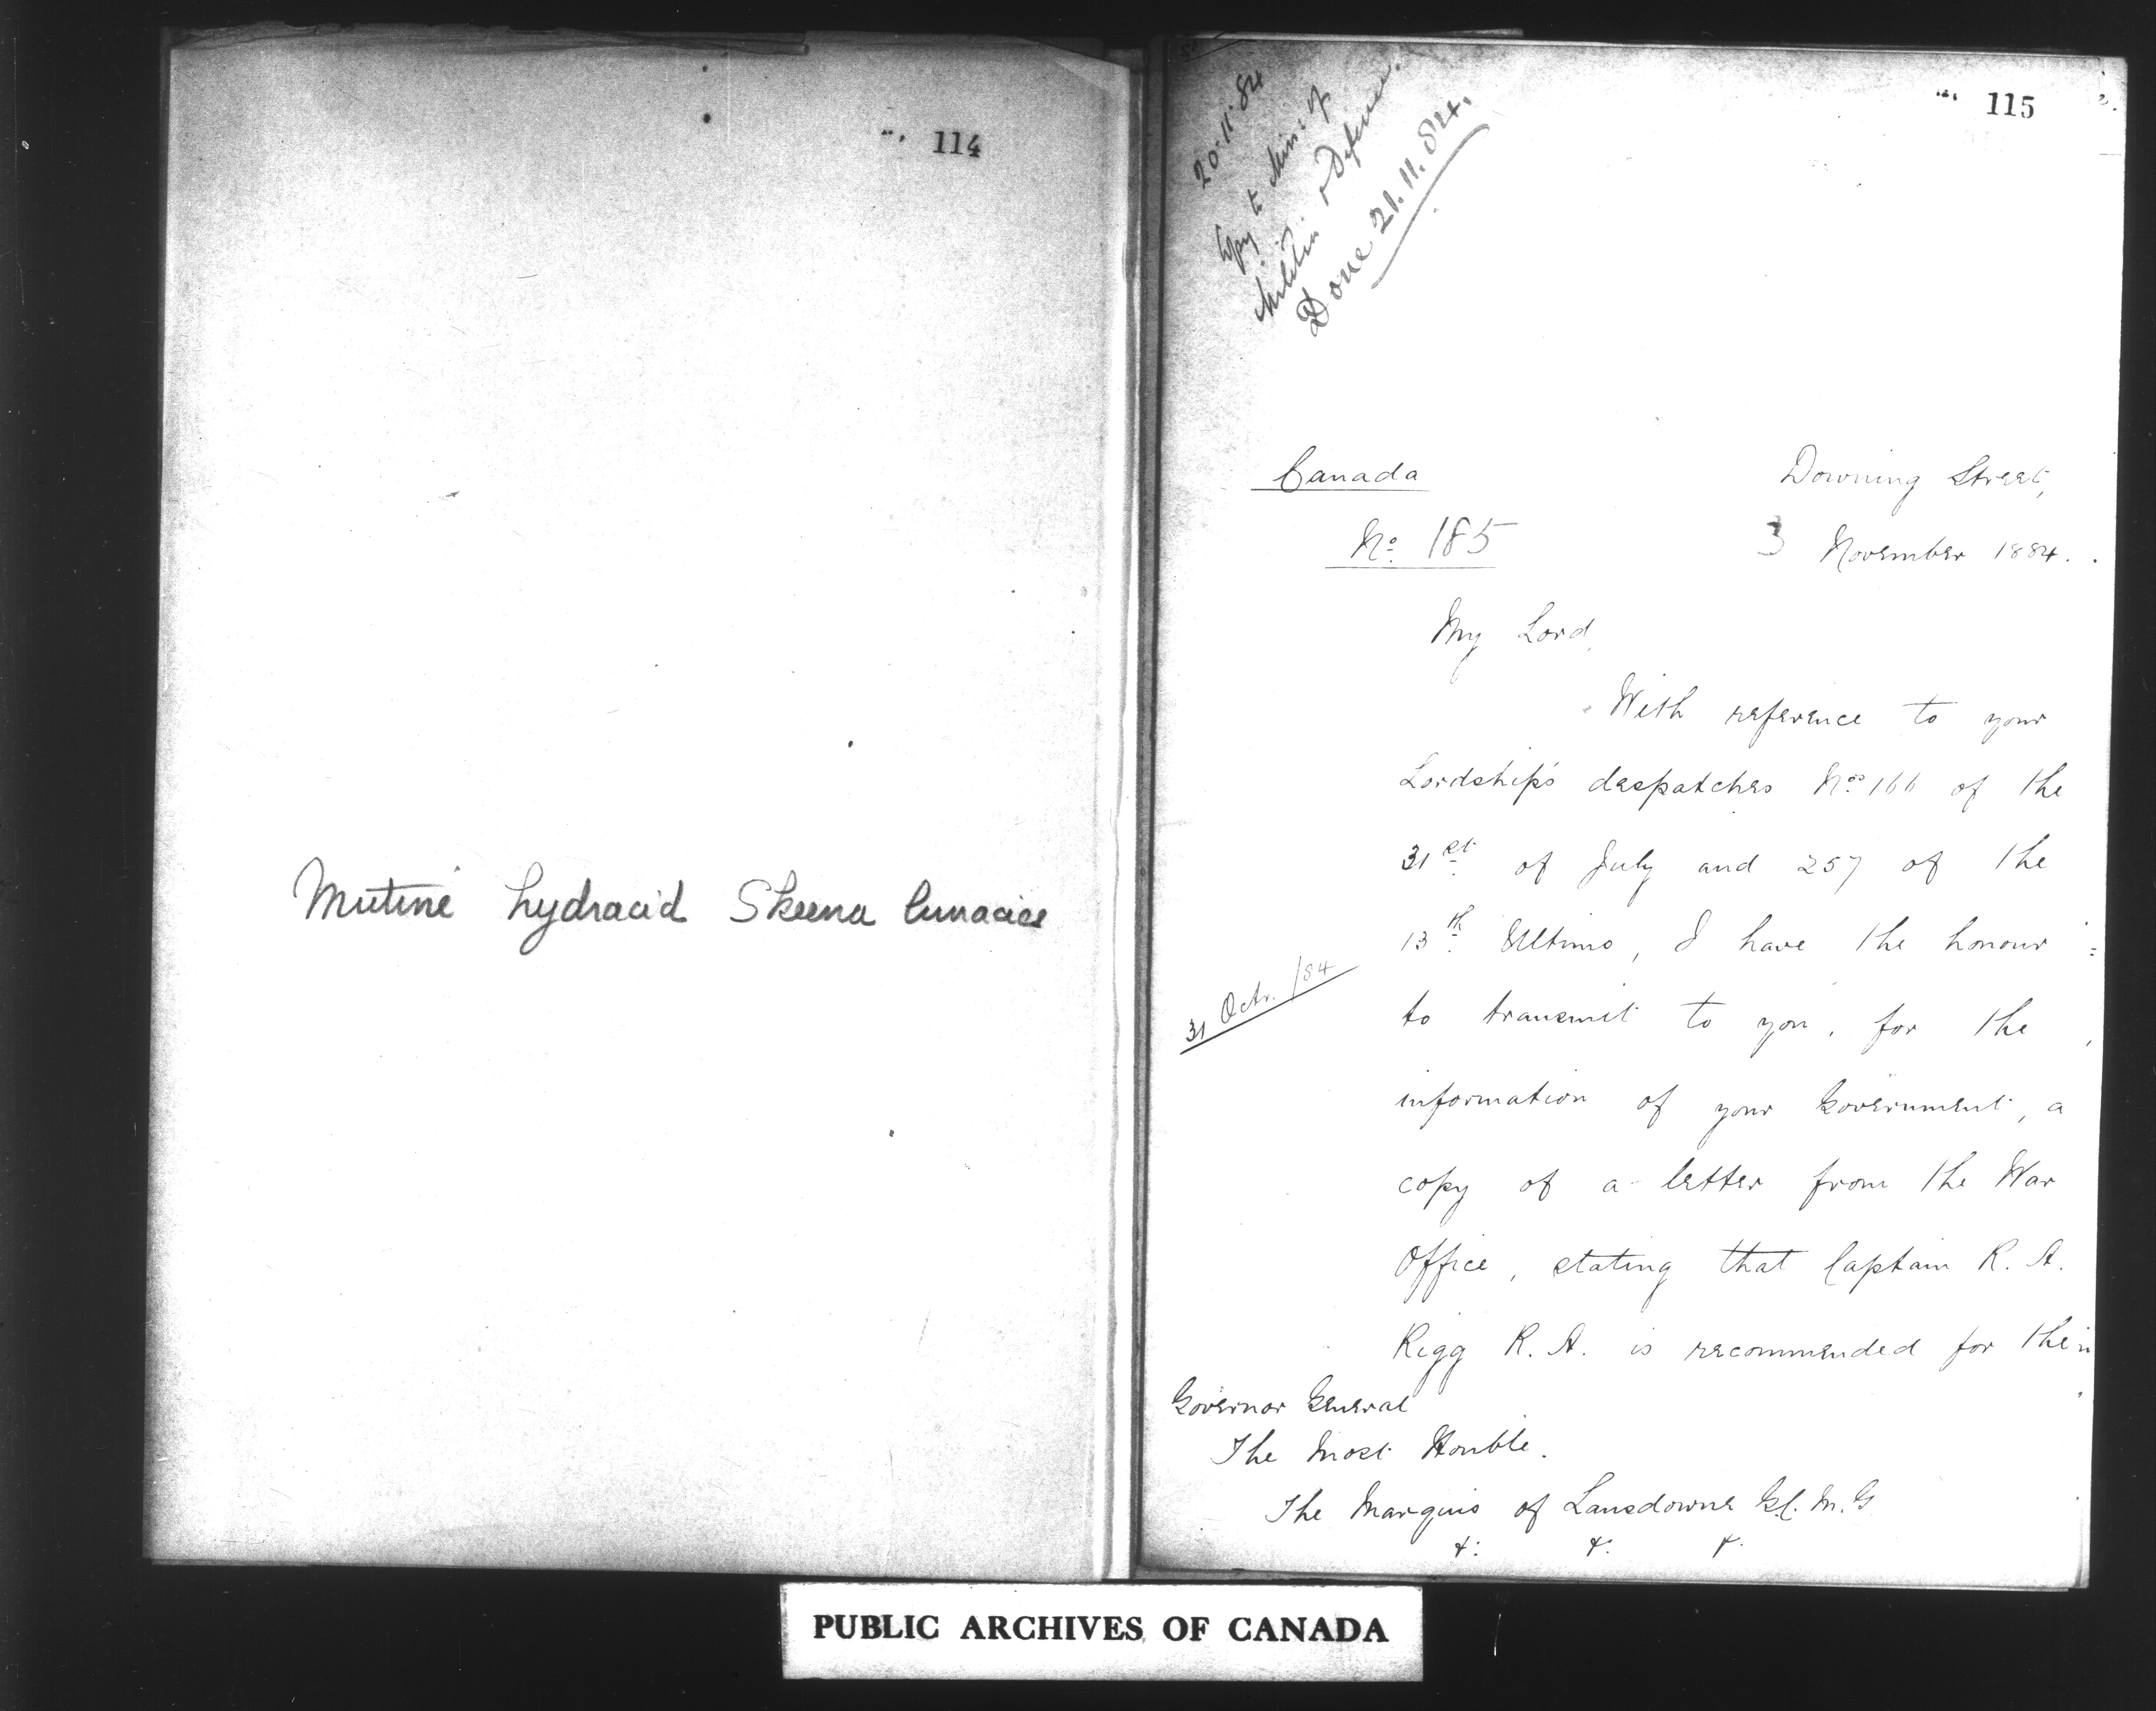 114
Mutine hydracid Skeena lunacies
115
20.11.84
Copy to Min: of
Militia & Defence.
Done 21.11.84.
Canada
Downing Street,
No. 185
3 November 1884.
My Lord,
With reference to your
Lordship's despatches Nos. 166 of the
31st. of July and 257 of the
13th. Ultimo, I have the honour
31 Octr. /84
to transmit to you, for the
information of your Government, a
copy of a letter from the War
Office, stating that Captain R. A.
Rigg R. A. is recommended for the
Governor General
The Most Honble.
The Marquis of Lansdowne G.C.M.G
&. &. &.
PUBLIC ARCHIVES OF CANADA